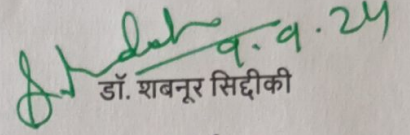 9.9.24
डॉ. शबनूर सिद्दीकी